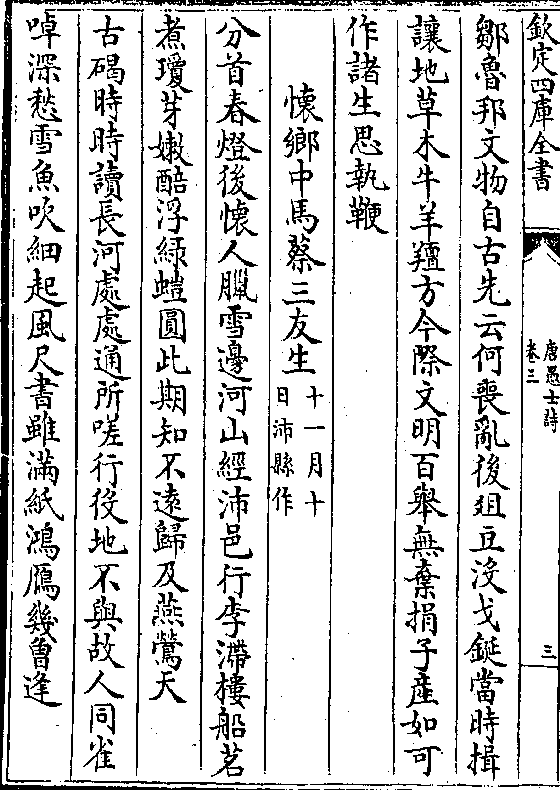 欽定四庫全書
唐愚士詩
卷三
三
鄒魯邦文物自古先云何喪亂後俎豆没戈鋋當時揖
讓地草木牛羊羶方今際文明百舉無棄捐子産如可
作諸生思執鞭
懐鄉中馬蔡三友生
十一月十
日沛縣作
分首春燈後懐人臘雪邊河山經沛邑行李滯樓船茗
煮瓊芽嫩醅浮緑螘圓此期知不遠歸及燕鶯天
古碣時時讀長河處處通所嗟行役地不與故人同雀
啅深愁雪魚吹細起風尺書雖滿紙鴻鴈幾曾逢